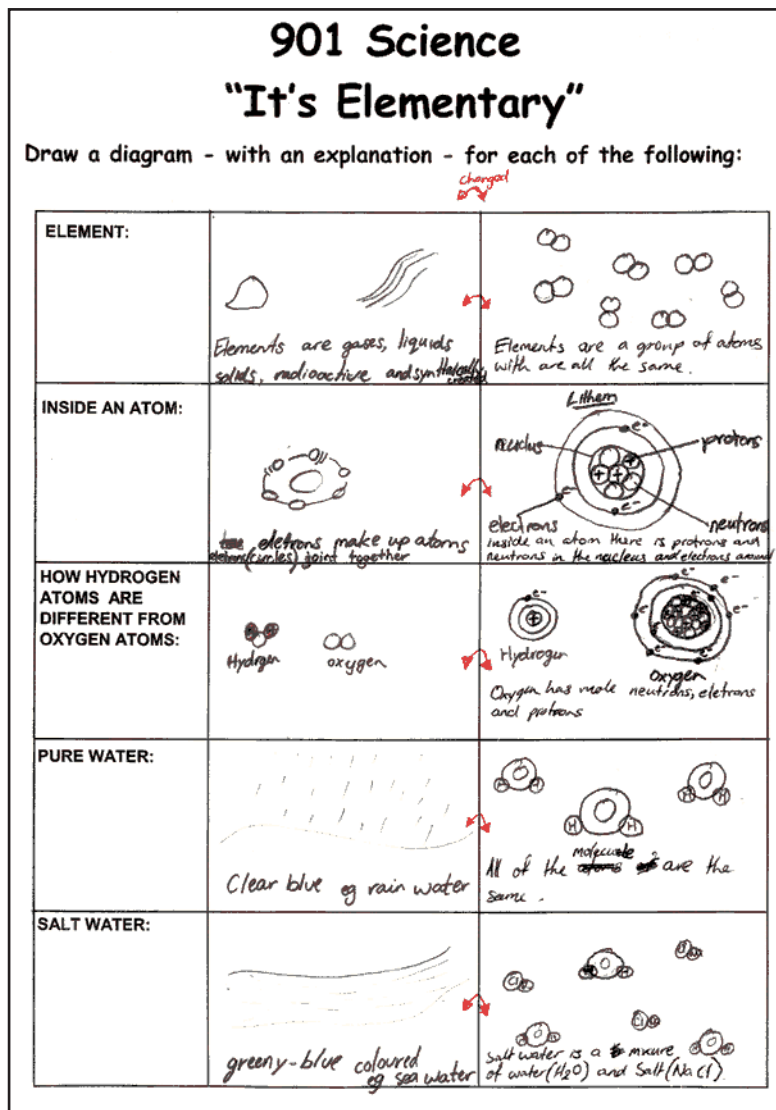 901 Science
"It's Elementary"
Draw a diagram - with an explanation - for each of the following:
changed
ELEMENT:
Elements are gases, liquids
solids, radioactive and synthetically
created
Elements are a group of atoms
with are all the same.
INSIDE AN ATOM:
eletrons make up atoms
eletrons (circles) joint together
Lithem
nuclus
protons
e-
e-
e-
+
+
+
electrons
neutrons
inside an atom there is protrons and
neutrons in the neacleus and electrons around
HOW HYDROGEN
ATOMS ARE
DIFFERENT FROM
OXYGEN ATOMS:
Hydrgen
oxygen
e-
+
Hydrogen
e-
e-
e-
e-
e-
e-
e-
e-
Oxygen
Oxygen has mole neutrons, eletrons
and protrons
PURE WATER:
Clear blue eg rain water
H
H
H
H
H
H
molecule
All of the are the
same.
SALT WATER:
greeny-blue coloured
eg sea water
Cl
Na
H
Salt water is a mixure
of water (H2O) and Salt (NaCl)